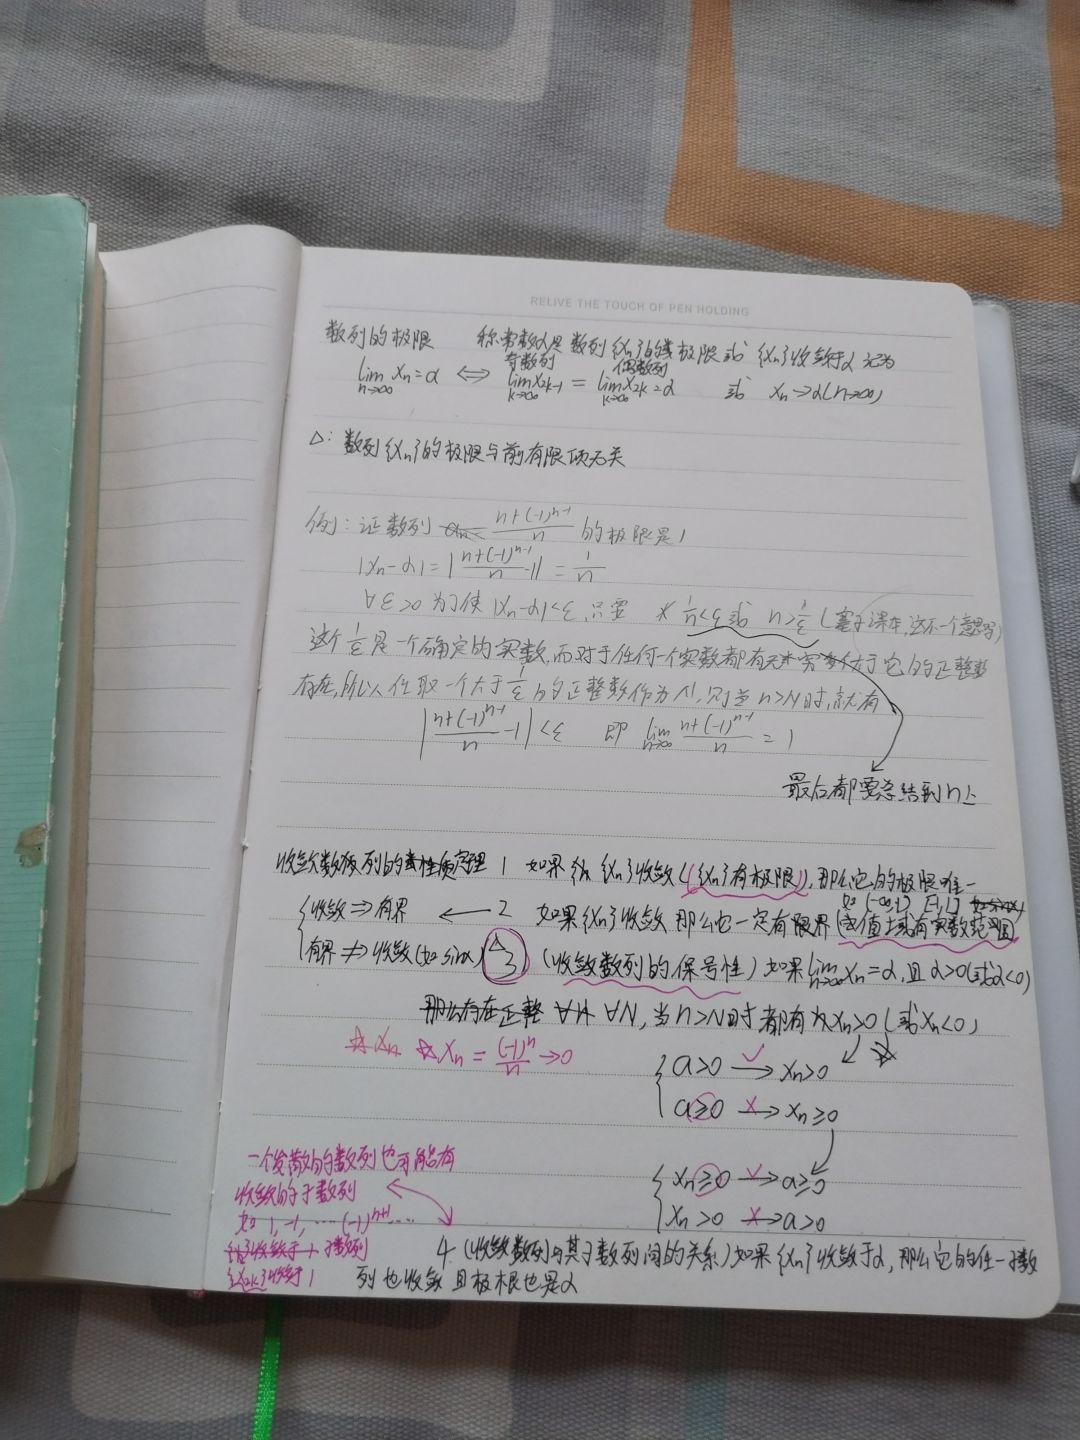 RELIVE THE TOUCH OF PEN HOLDING
数列的极限 称常数α是数列{xn}的极限或{xn}收敛于α 记为
奇数列 偶数列
lim n→∞ xn=α ⇔ lim k→∞ x2k-1 = lim k→∞ x2k=α 或 xn→α(n→∞)
△: 数列{xn}的极限与前有限项无关
例: 证数列 (n+(-1)^(n-1))/n 的极限是1
|xn-α|=|(n+(-1)^(n-1))/n -1|=1/n
∀ε>0 为了使|xn-α|<ε,只要 1/n<ε或 n>1/ε(
这个1/ε是一个确定的实数,而对于任何一个实数都有无穷多个大于它的正整数
存在,所以任取一个大于1/ε的正整数作为N,则当n>N时,就有
|(n+(-1)^(n-1))/n -1|<ε 即 lim n→∞ (n+(-1)^(n-1))/n = 1
最后都要总结到n上
收敛数列的性质定理 1 如果{xn}收敛({xn}有极限),那么它的极限唯一
{收敛⇒有界 ← 2 如果{xn}收敛 那么它一定有限界(
有界⇏收敛(如sinx) △3 (收敛数列的保号性)如果lim n→∞ xn=α,且α>0(或α<0)
那么存在正整 ∀N,当n>N时都有xn>0(或xn<0)
☆xn=(-1)^n/n→0
{a>0 ✓→ xn>0
a≥0 ×→ xn≥0
{xn≥0 ✓→ a≥0
xn>0 ×→ a>0
一个发散的数列也可能有
收敛的子数列
如 1,-1,…(-1)^(n+1)…
4 (收敛数列与其子数列间的关系)如果{xn}收敛于α,那么它的任一子数
列也收敛且极根也是α